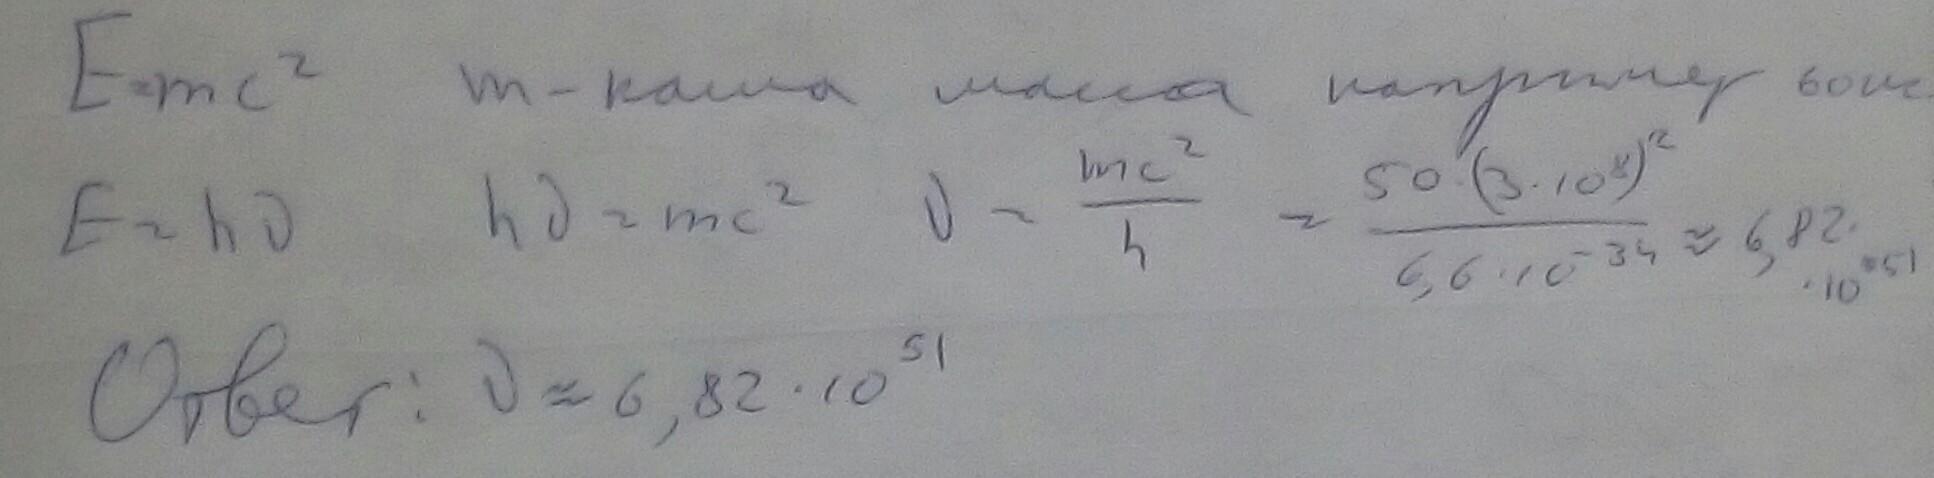 E=mc² m - наша масса например 60кг
E=hν hν=mc² ν = mc²/h = 50·(3·10⁸)²/6,6·10⁻³⁴ ≈ 6,82·10⁵¹
Ответ: ν≈6,82·10⁵¹